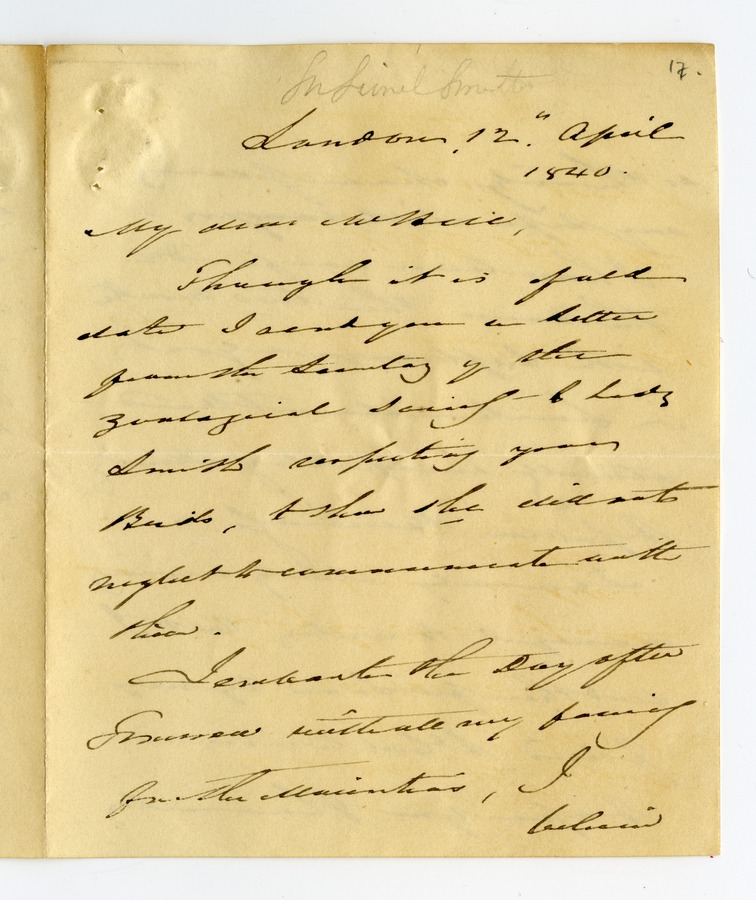 Sir Lionel Smith
17.
London, 12" April
1840.
My dear McNeill,
Though it is of old
date I send you a letter
from the Secretary of the
Zoological Society to Lady
Smith respecting your
Birds, to shew she did not
neglect to communicate with
him.
I embark the Day after
Tomorrow with all my family
for the Mauritius, I
believe